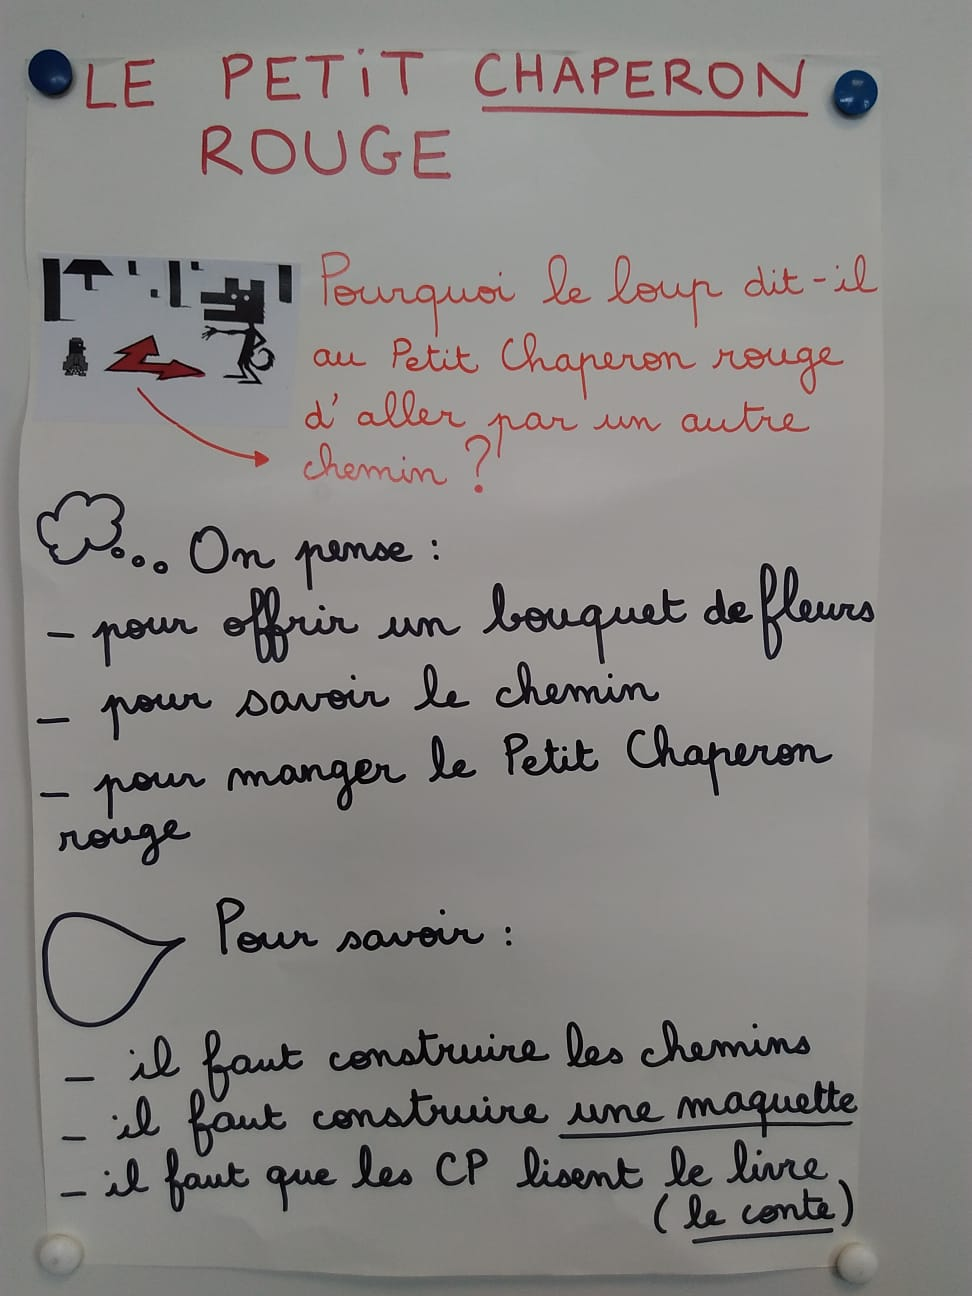 LE PETIT CHAPERON
ROUGE
Pourquoi le loup dit-il
au Petit Chaperon rouge
d'aller par un autre
chemin ?
... On pense :
- pour offrir un bouquet de fleurs
- pour savoir le chemin
- pour manger le Petit Chaperon
rouge
Pour savoir :
- il faut construire les chemins
- il faut construire une maquette
- il faut que les CP lisent le livre
(le conte)